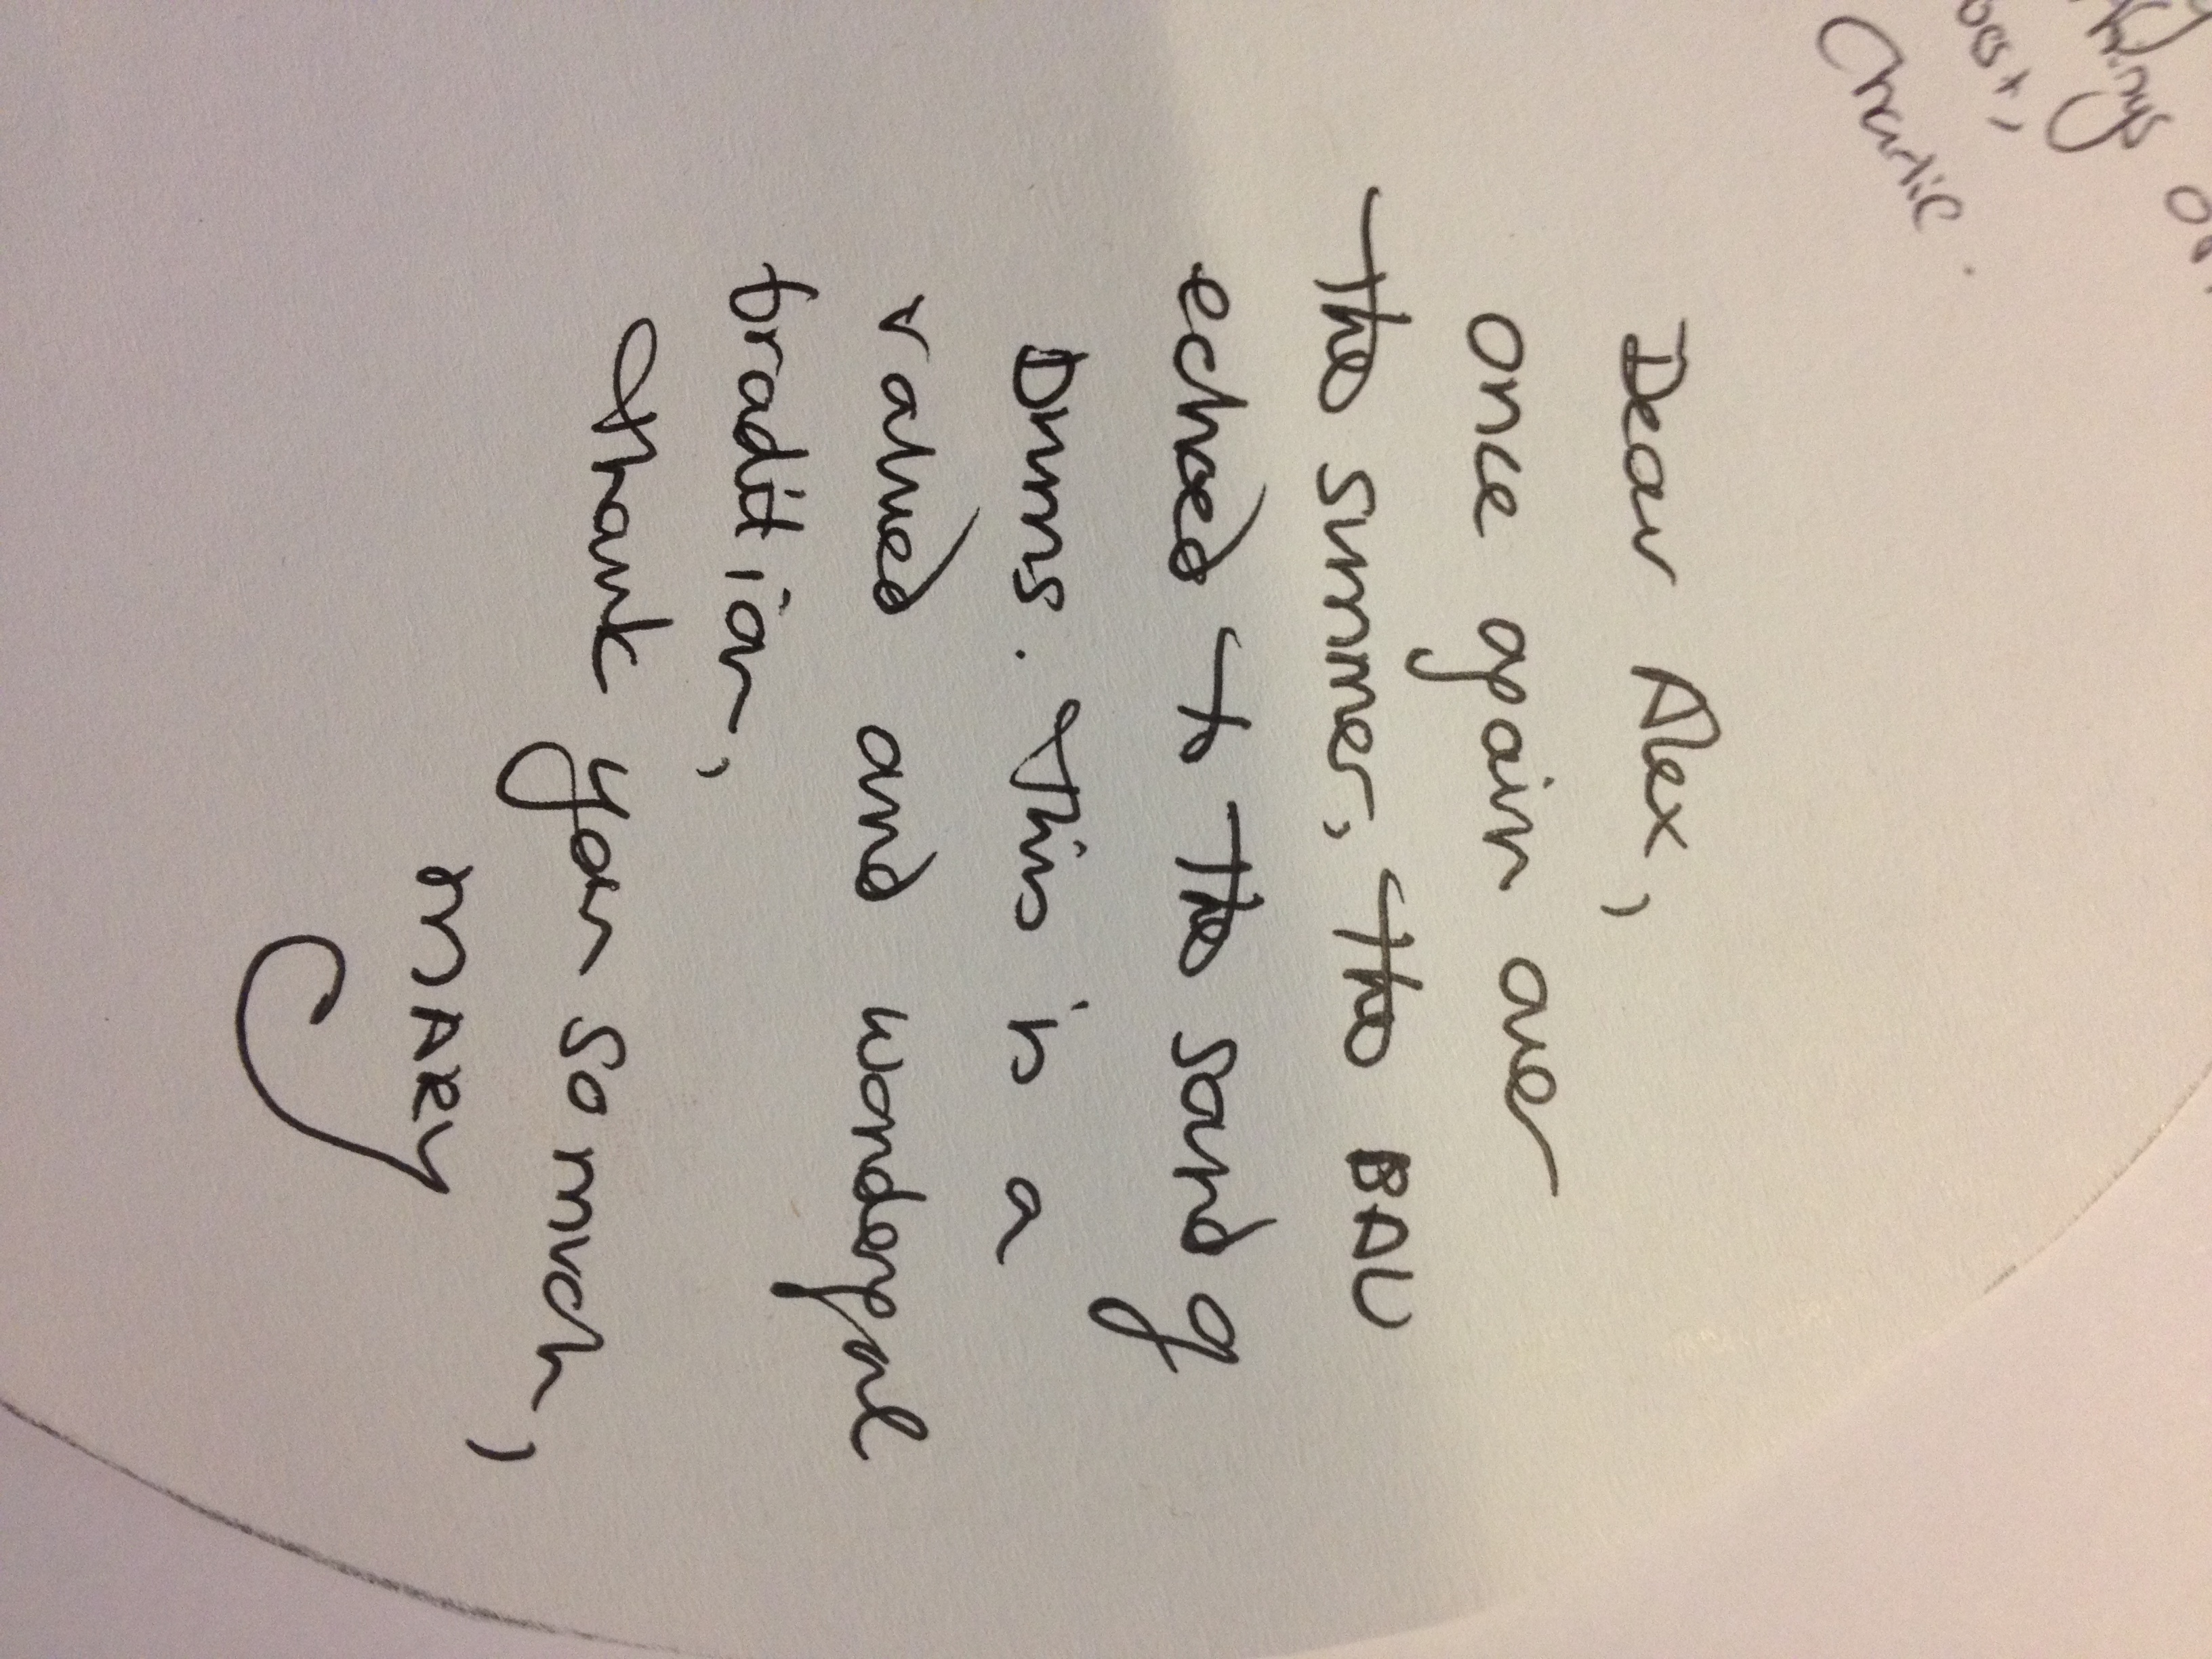 Dear Alex,
Once again over
the summer, the BAU
echoed to the sound of
Drums. This is a
valued and wonderful
tradition,
Thank you so much,
MARY
things
best,
Charlie.